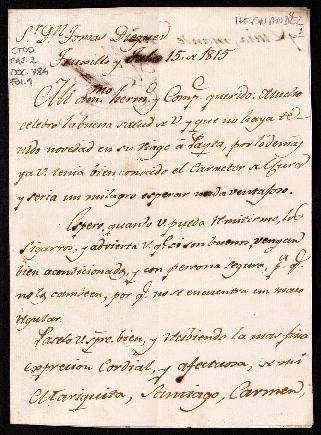 HERNANDEZ
1
Sr. Dn. Tomas Dieguez
CTDD
CAJ. 2
DOC. 784
FOL. 1
Truxillo y Julio 15. de 1815
Mi amo. hermo. y Compe. querido: Mucho
celebro la buena salud de V. y que no haya te-
nido novedad en su viage á Payta, por lo demas
ya V. tenia bien conocido el Caracter del Cura
y seria un milagro esperar nada ventajoso.
Espero, quando V. pueda remitirme, los
Sigarros, y advierta V. que si son buenos, vengan
bien acondicionados, y con persona segura, pa. qe.
no los cambeen, por qe. no se encuentra un mazo
regular.
Paselo V. spre. bien, y recibiendo la mas fina
expresion Cordial, y afectuosa, de mi
Mariquita, Santiago, Carmen,